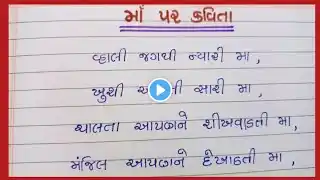 માઁ પર કવિતા
વ્હાલી જગથી ન્યારી મા,
ખુશી સારી મા,
ચાલતા આપણને શીખવાડતી મા,
મંજિલ આપણને દેખાડતી મા,